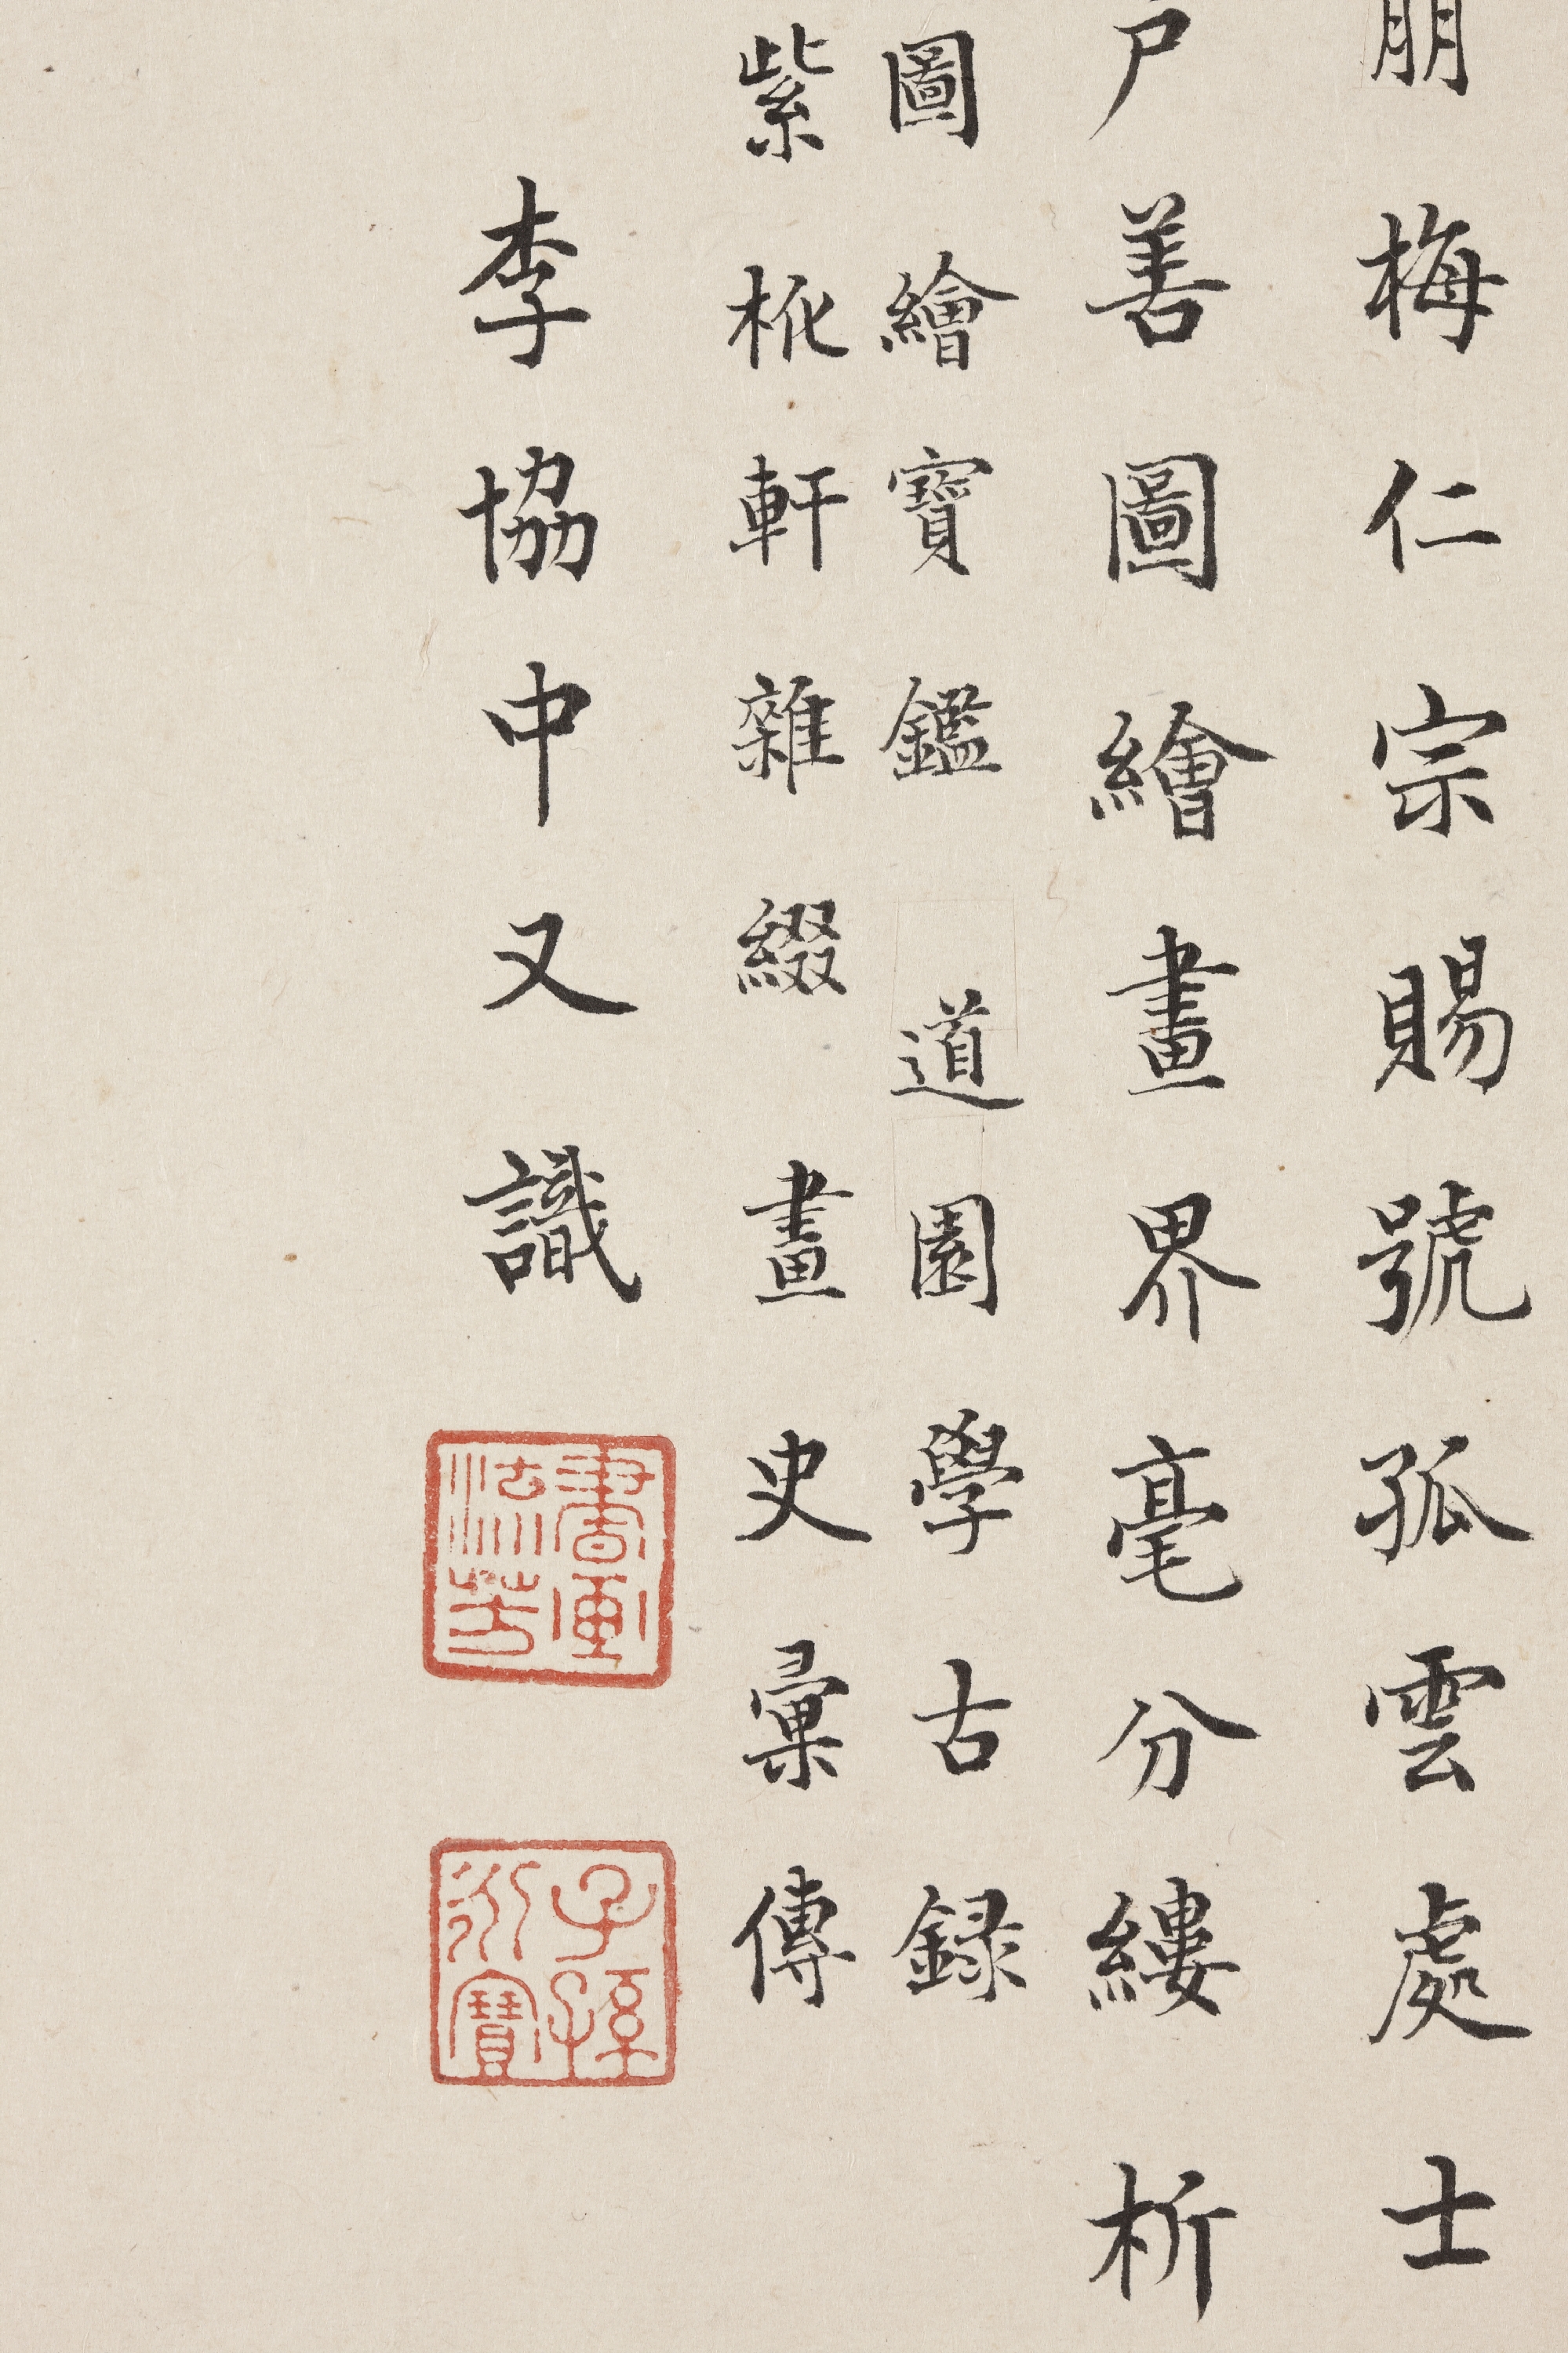 朋梅仁宗賜號孤雲處士
戶善圖繪畫界毫分縷析
圖繪寶鑑 道園學古録
紫桃軒雜綴 畫史彙傳
李協中又識
書画流芳
子孫永寶